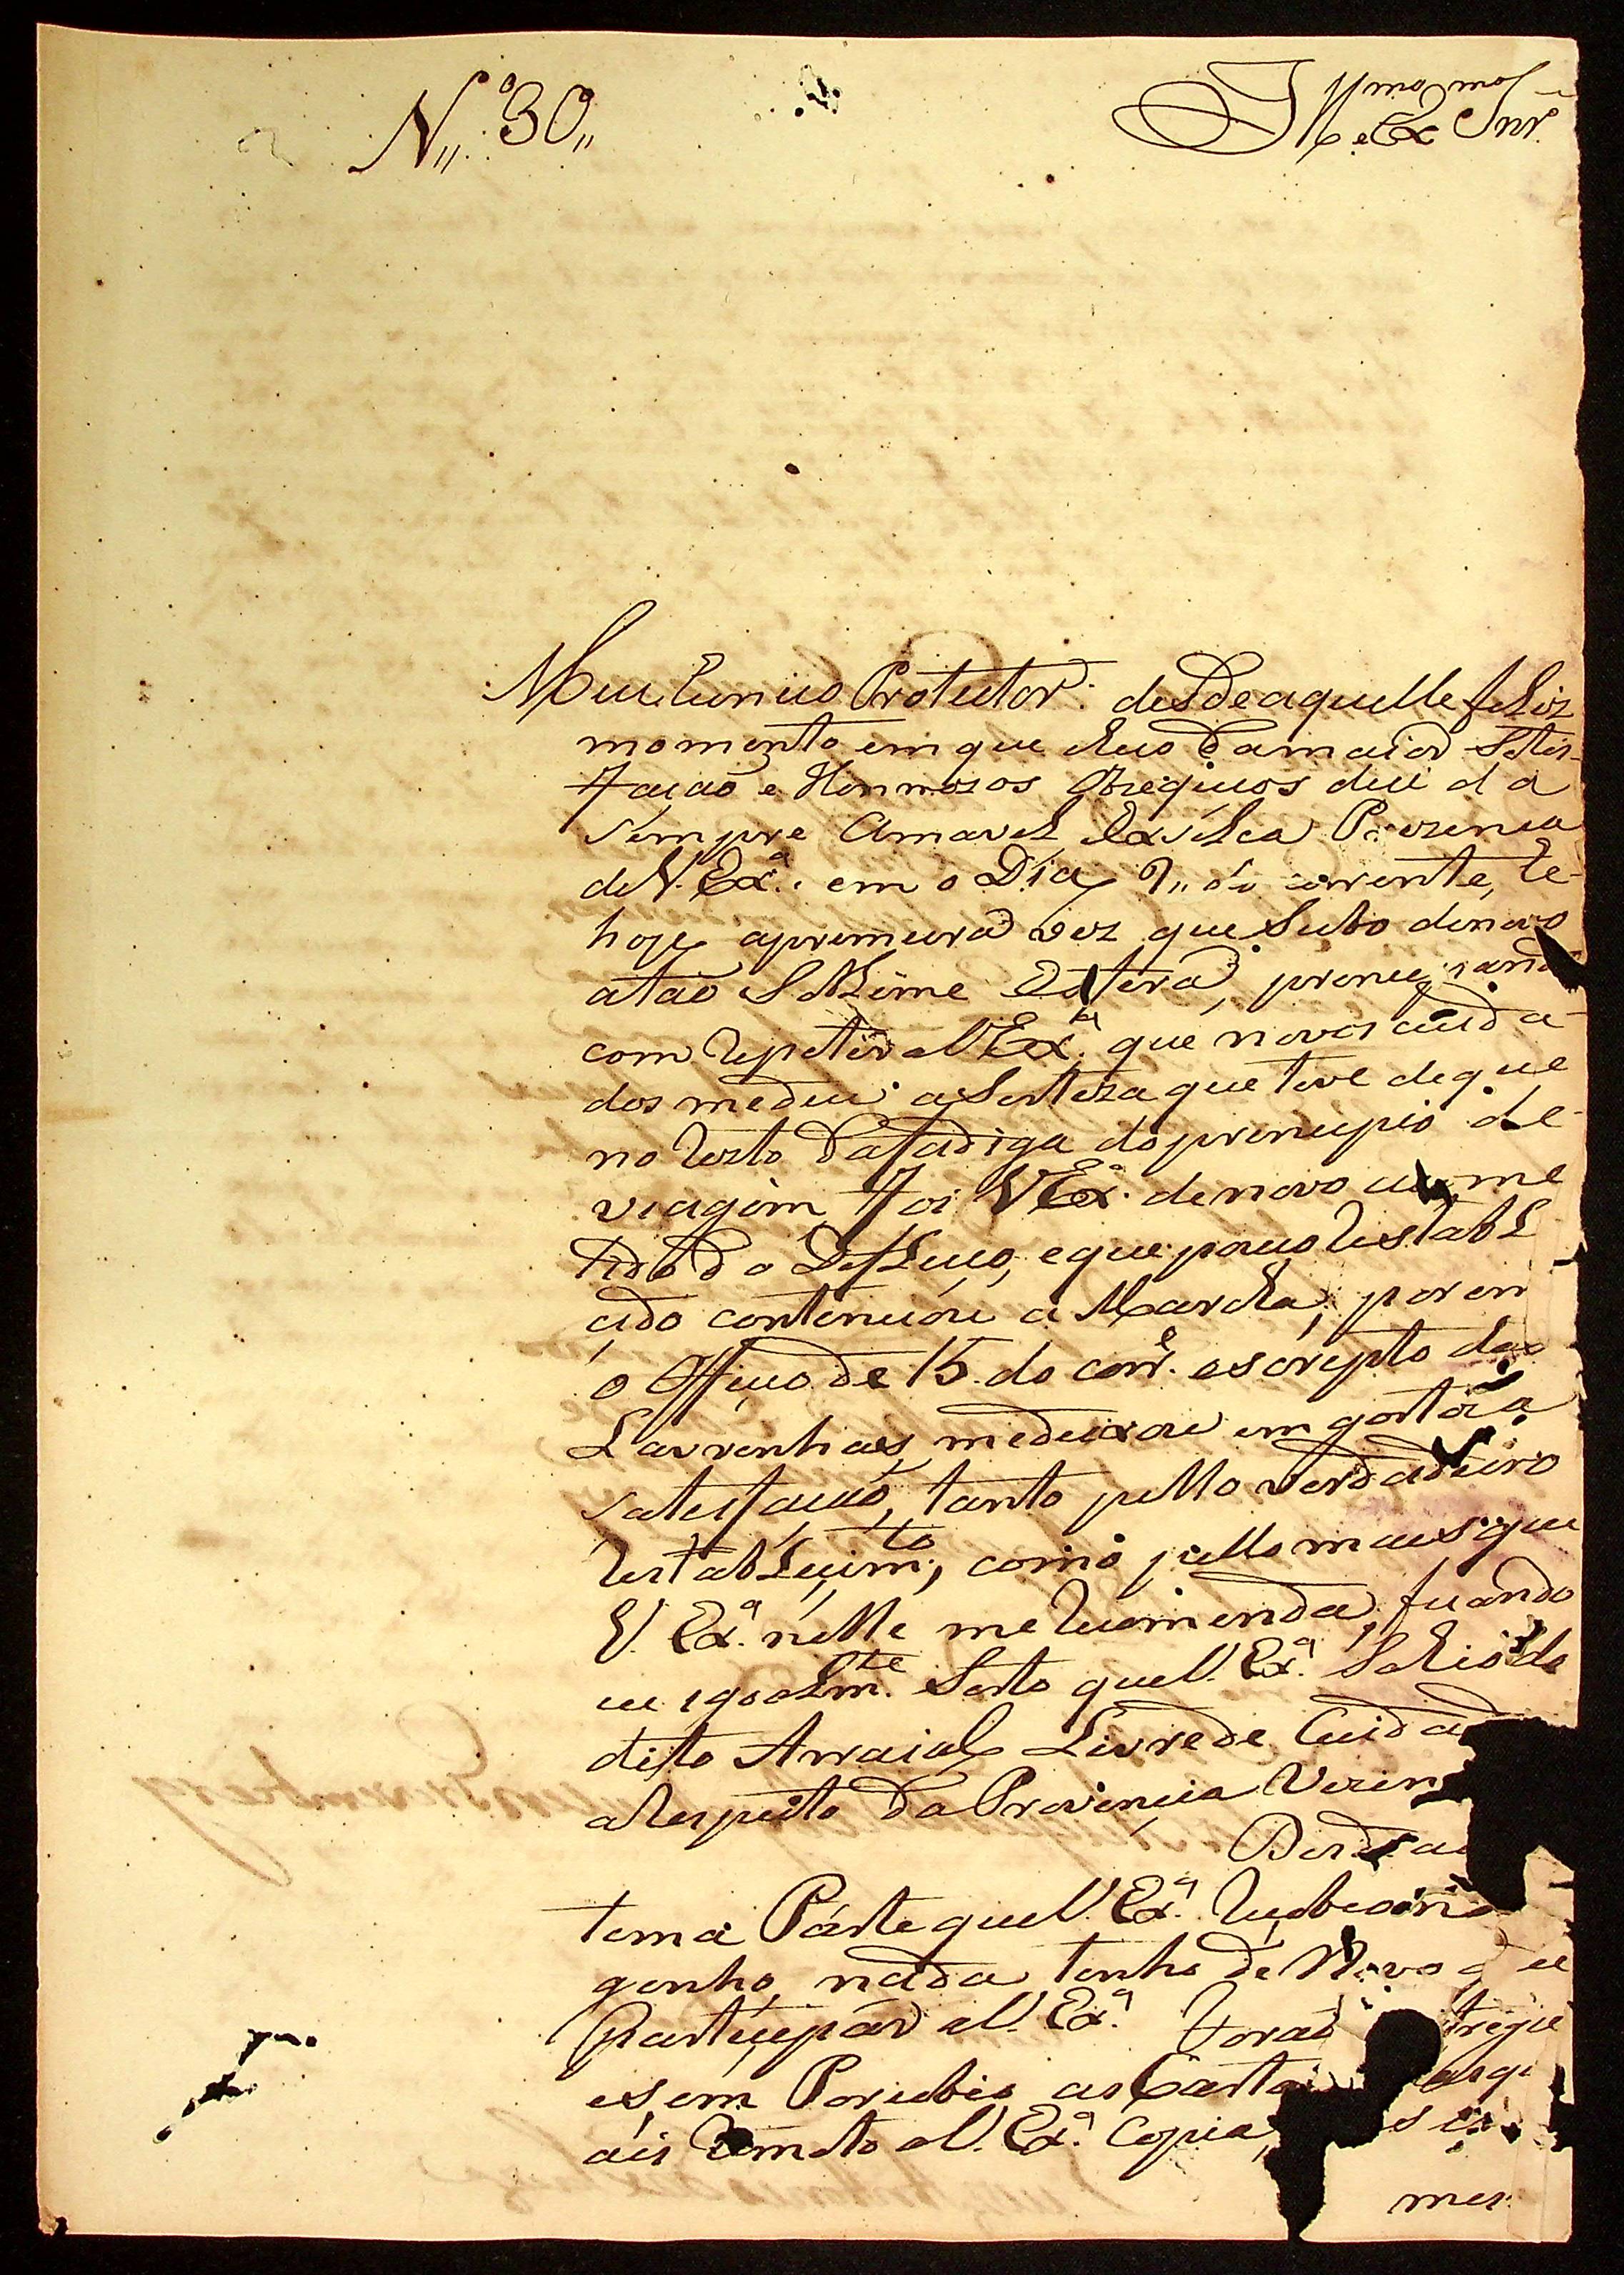 N.º 30,,
Ill.mo e Ex.mo Snr.
Meu Eunico Protutor: desde aquelle feLiz
momento em que cheio da maior Satis-
façaõ e Honrrozos Obzequios deichei da
Sempre AmaveL Presenca
de V. Ex.ª em o Dia do corrente, he
hoje a premeira vez que Subo de novo
a taõ SuBLime
com repetir a V Ex.ª que novos cuida-
dos me deu a Serteza que teve de que
no resto da fadiga do prencipio de
viagem foi V Ex.ª de novo acome
tido do DefLuço, e que pouco restabLe
cido contenuou a Marcha; porem
o Officio de 15 do corr.e escrepto das
Lavrenhas, me deixou em gostoza
satesfaçaõ, tanto pello verdadeiro
restabLecim.to, como pello mais que
V. Ex.ª nelle me recomenda, ficando
eu igoaLm.te Serto que V. Ex.ª Sahio do
dito ArraiaL Livre de Cuidad
a respeito da Provincia Vezin
Dessa
tema Parte que V. Ex.ª
genho, nada tenho de Novo que
Partecipar a V. Ex.ª Foraõ tregue
es, em as Cartas asqu
ais remeto a V. Ex.ª Copia,
mes